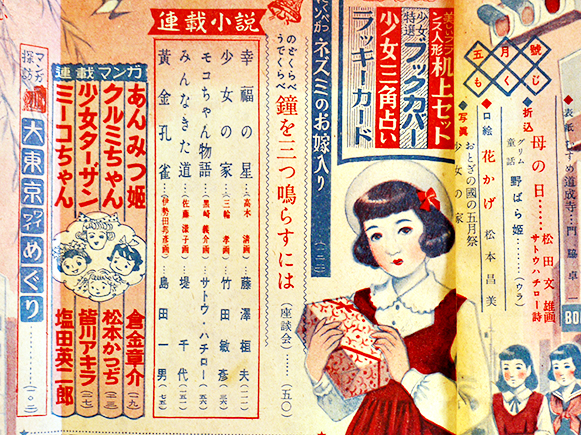 五月號
もくじ
表紙 すずめ
道成寺…門脇卓一
折込
母の日……松田文雄画
サトウハチロー詩
グリム童話
野ばら姫……(ウラ)
口絵
花かげ
松本昌美
写真
おとぎの國の五月祭
少女の家
机上セット
少女特選
ブックカバー
少女三角占い
ラッキーカード
ネズミのお嫁入り
(一二二)
のどくらべ
うでくらべ
鐘を三つ鳴らすには
(座談会)……(五〇)
連載小説
幸福の星(高木清画)藤澤桓夫(二二)
少女の家(三輪孝画)竹田敏彦(三六)
モコちゃん物語(黒崎義介画)サトウ・ハチロー(五六)
みんなきた道(佐藤漾子画)堤千代(五二)
黄金孔雀(伊勢田邦彦画)島田一男(七五)
連載マンガ
あんみつ姫
倉金章介(一九)
クルミちゃん
松本かつぢ(三三)
少女ターザン
皆川アキラ(二七)
ミーコちゃん
塩田英二郎
マンガ探訪
大東京ワイワイめぐり
(一〇三)
BO